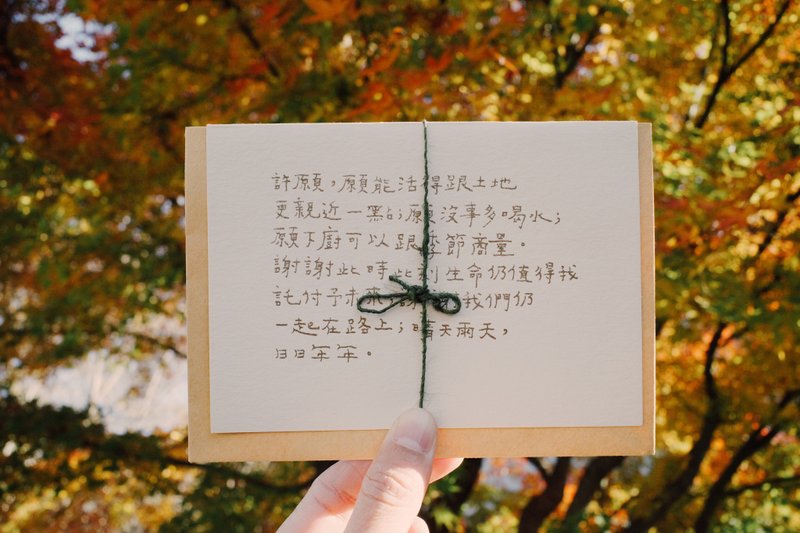 許願,願能活得跟土地
更親近一點;願沒事多喝水;
願下廚可以跟季節商量。
謝謝此時此刻生命仍值得我
託付予未來;謝 我們仍
一起在路上;晴天雨天,
日日年年。